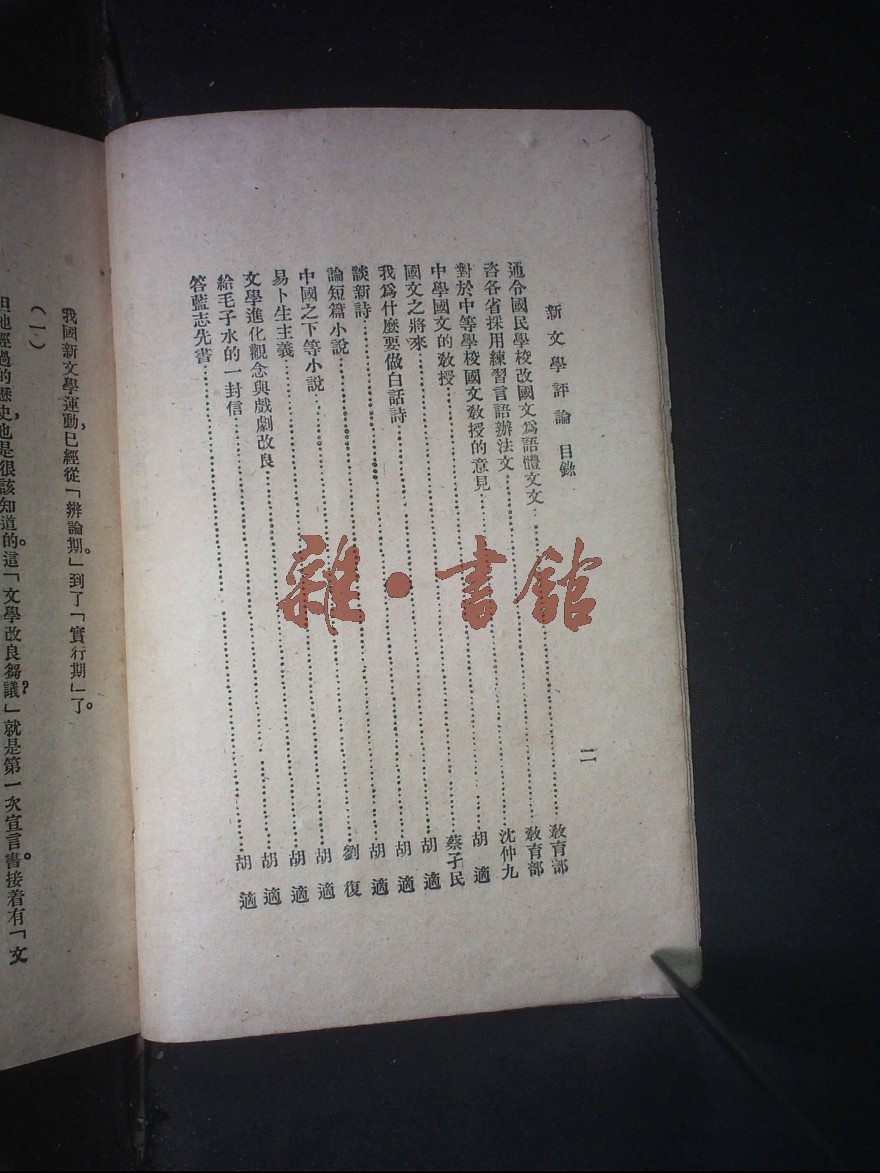 新文學評論 目錄
二
通令國民學校改國文爲語體文文……教育部
咨各省採用練習言語辦法文……教育部
對於中等學校國文教授的意見……沈仲九
中學國文的教授……胡適
國文之將來……蔡孑民
我爲什麼要做白話詩……胡適
談新詩……胡適
論短篇小說……胡適
中國之下等小說……劉復
易卜生主義……胡適
文學進化觀念與戲劇改良……胡適
給毛子水的一封信……胡適
答藍志先書……胡適
我國新文學運動,已經從「辨論期。」到了「實行期」了。
(一)
經過的歷史,也是很該知道的。這「文學改良芻議」就是第一次宣言書。接着有「文
雜·書館